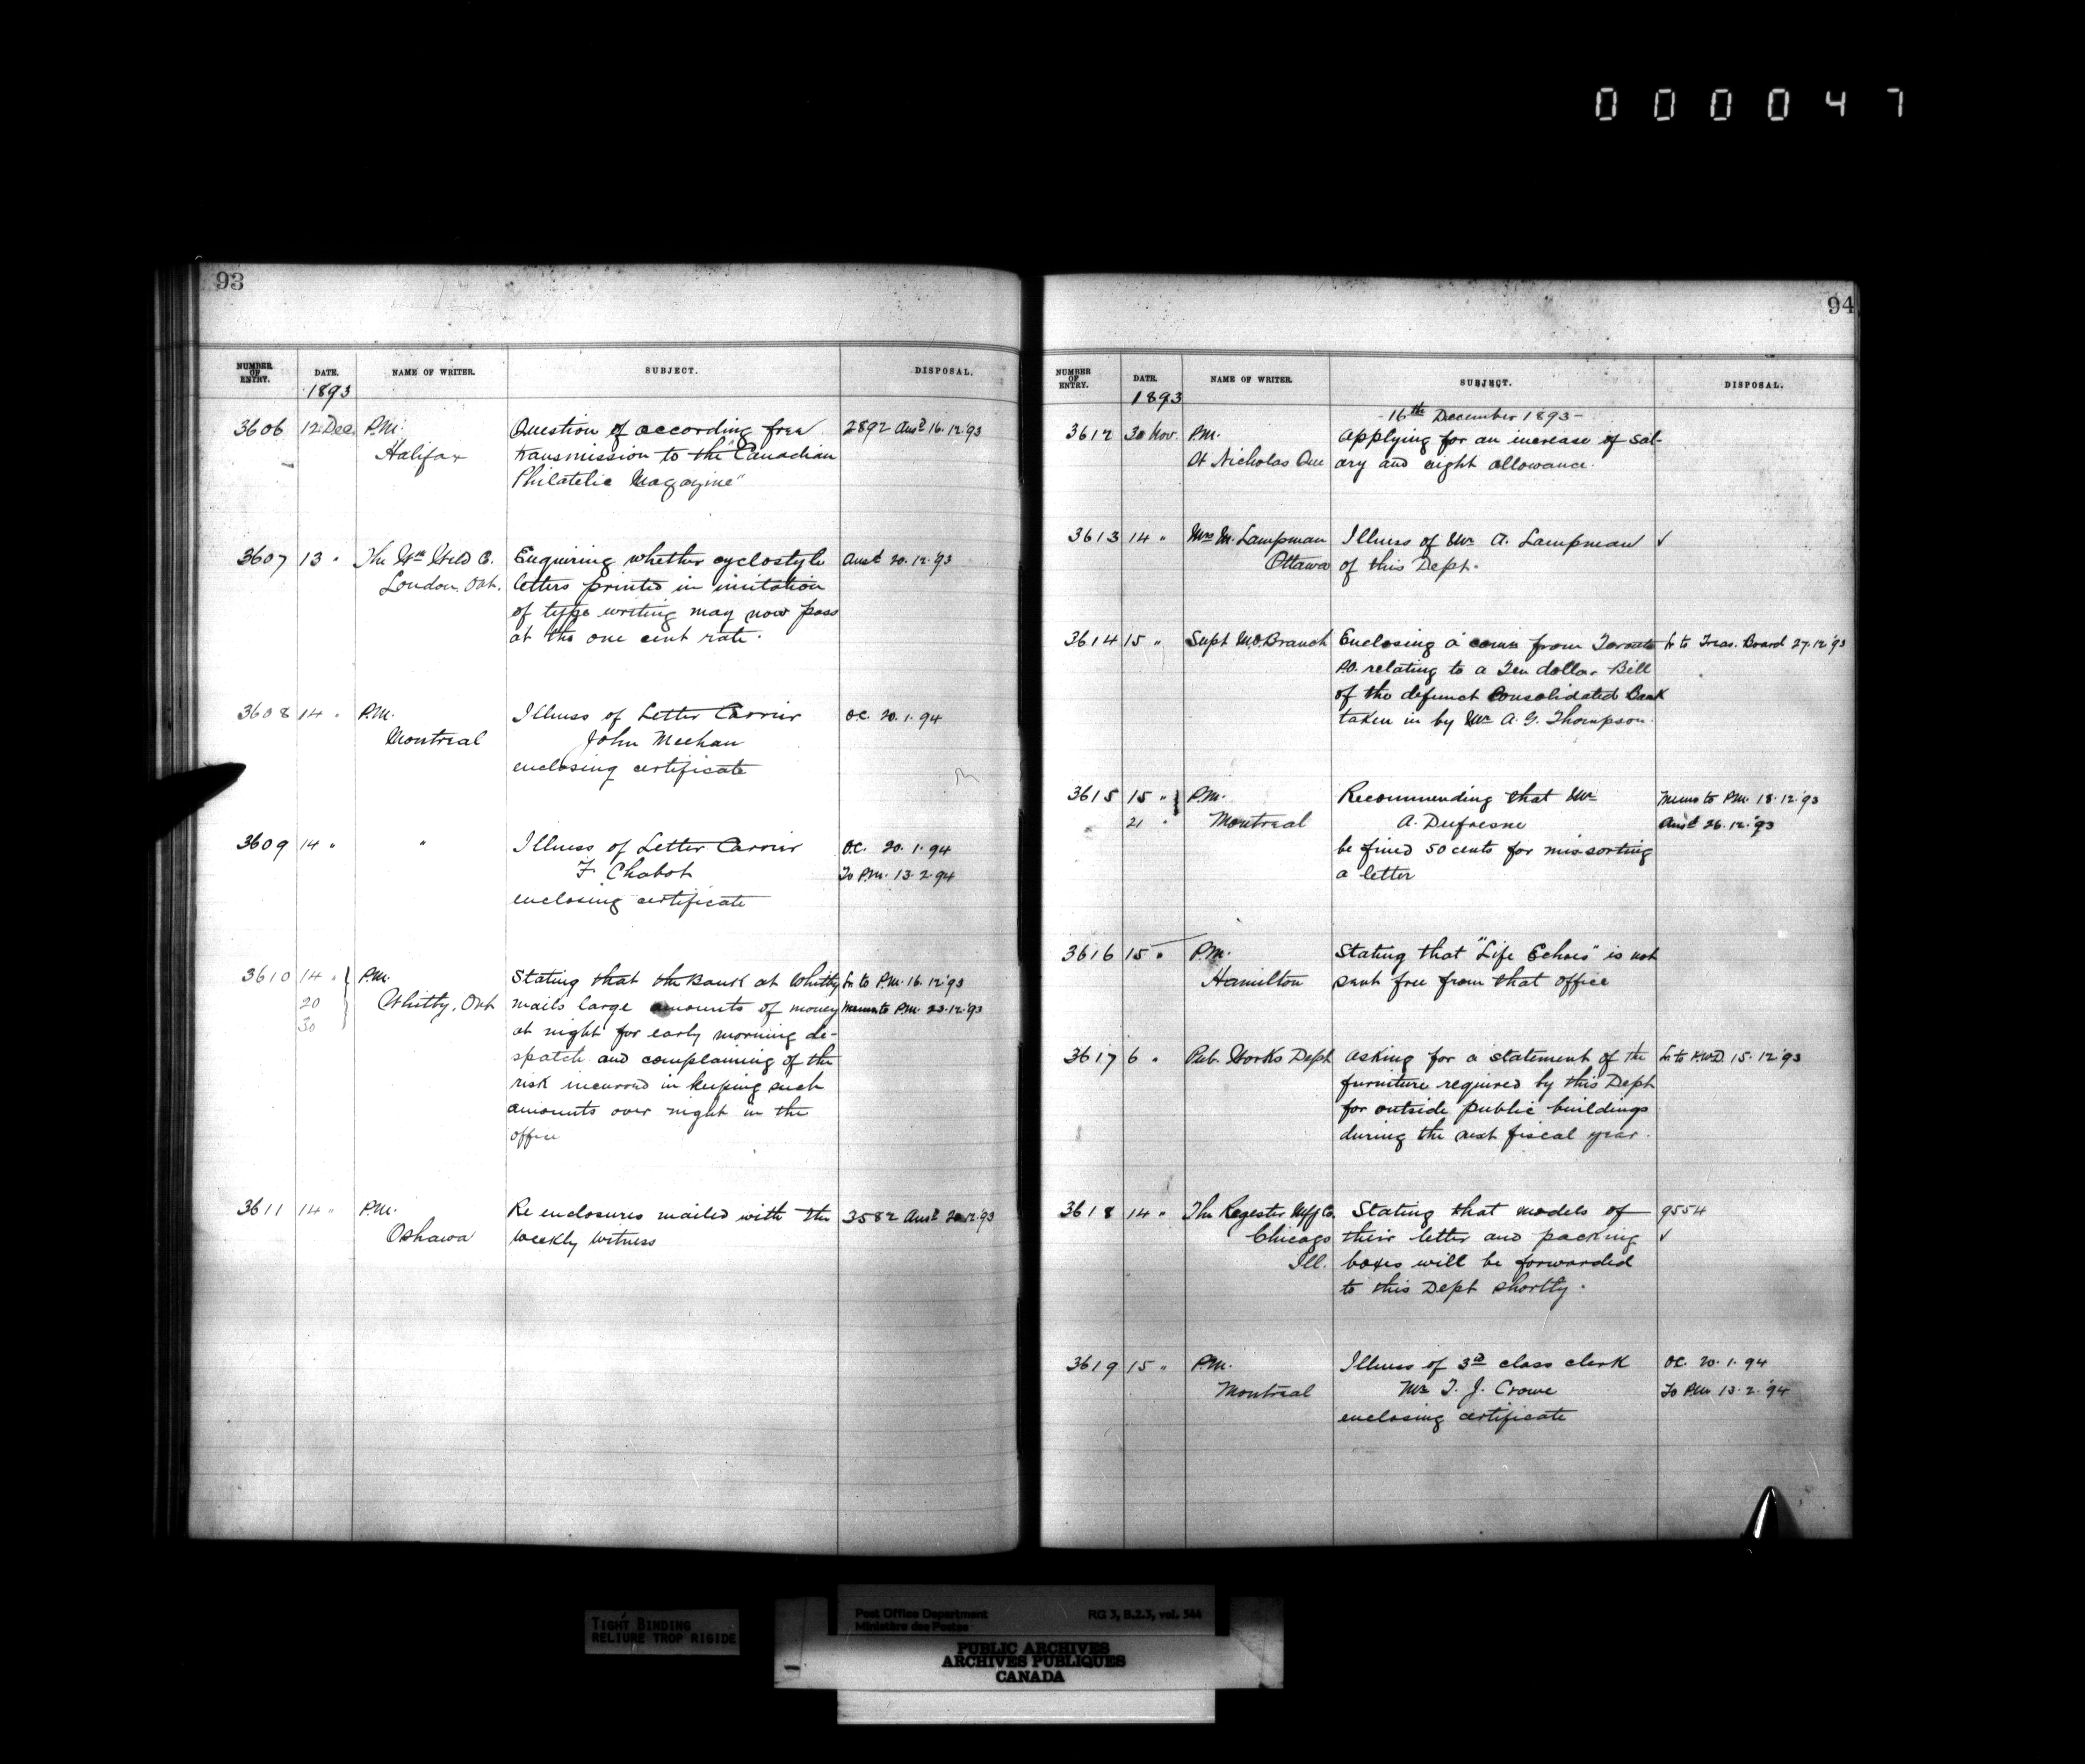 0 0 0 0 4 7
93
NUMBER OF ENTRY. DATE. NAME OF WRITER. SUBJECT. DISPOSAL.
1893
3606 12 Dec. P.M. Question of according free 2892 Ansd 16.12.93
Halifax transmission to the "Canadian
Philatelic Magazine"
3607 13 " The Wm Weld Co. Enquiring whether cyclostyle Ansd 20.12.93
London, Ont. letters printed in imitation
of type writing may now pass
at the one cent rate.
3608 14 " P.M. Illness of Letter Carrier O.C. 20.1.94
Montreal John Meehan
enclosing certificate
3609 14 " " Illness of Letter Carrier O.C. 20.1.94
F. Chabot To P.M. 13.2.94
enclosing certificate
3610 14 " P.M. Stating that the Bank at Whitby Lr to P.M. 16.12.'93
20 Whitby, Ont mails large amounts of money Memo to P.M. 23.12.'93
30 at night for early morning de-
spatch and complaining of the
risk incurred in keeping such
amounts over night in the
office
3611 14 " P.M. Re enclosures mailed with the 3582 Ansd 20.12.'93
Oshawa Weekly Witness
94
NUMBER OF ENTRY. DATE. NAME OF WRITER. SUBJECT. DISPOSAL.
1893
- 16th December 1893 -
3612 30 Nov. P.M. Applying for an increase of sal-
St Nicholas Que ary and night allowance.
3613 14 " Mrs M. Lampman Illness of Mr A. Lampman ✓
Ottawa of this Dept.
3614 15 " Supt M.O. Branch Enclosing a comn from Toronto Lr to Treas. Board 27.12.'93
P.O. relating to a Ten dollar Bill
of the defunct Consolidated Bank
taken in by Mr A. G. Thompson.
3615 15 " P.M. Recommending that Mr Memo to P.M. 18.12.'93
21 " Montreal A. Dufresne Ansd 26.12.'93
be fined 50 cents for mis-sorting
a letter
3616 15 " P.M. Stating that "Life Echoes" is not
Hamilton sent free from that office
3617 6 " Pub. Works Dept Asking for a statement of the Lr to P.W.D. 15.12.'93
furniture required by this Dept
for outside public buildings
during the next fiscal year.
3618 14 " The Regester Mfg Co. Stating that models of 9554
Chicago their letter and packing ✓
Ill. boxes will be forwarded
to this Dept shortly.
3619 15 " P.M. Illness of 3d class clerk O.C. 20.1.94
Montreal Mr T. J. Crowe To P.M. 13.2.'94
enclosing certificate
TIGHT BINDING
RELIURE TROP RIGIDE
Post Office Department RG 3, B.2.3, vol. 544
Ministère des Postes
PUBLIC ARCHIVES
ARCHIVES PUBLIQUES
CANADA